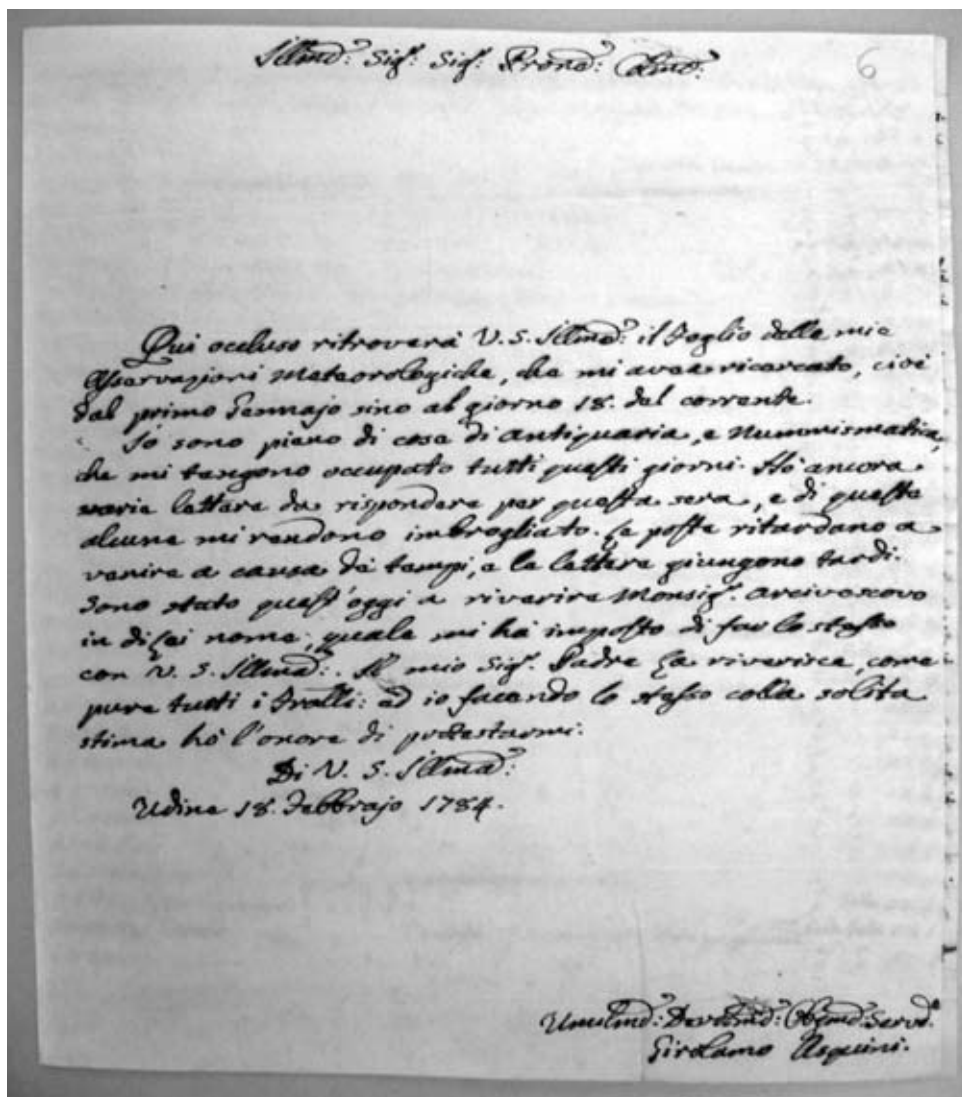 Illmo: Sigr: Sigr: Prone: Colmo:
6
Qui occluso ritroverà V. S. Illma: il Foglio delle mie
Osservazioni Meteorologiche, che mi avea ricercato, cioè
dal primo Gennajo sino al giorno 18. del corrente.
Io sono pieno di cose di antiquaria, e Nummismatica,
che mi tengono occupato tutti questi giorni. Hò ancora
varie lettere da rispondere per questa sera, e di queste
alcune mi rendono imbrogliato. Le poste ritardano a
venire a causa de tempi, e le lettere giungono tardi.
Sono stato quest'oggi a riverire Monsigr. Arcivescovo
in di Lei nome, quale mi hà imposto di far lo stesso
con V. S. Illma:. Il mio Sigr. Padre La riverisce, come
pure tutti i Fratelli: ed io facendo lo stesso colla solita
stima hò l'onore di protestarmi.
Di V. S. Illma:
Udine 18. Febbrajo 1784.
Umilmo: Devotmo: Obgmo: Serve.
Girolamo Asquini.